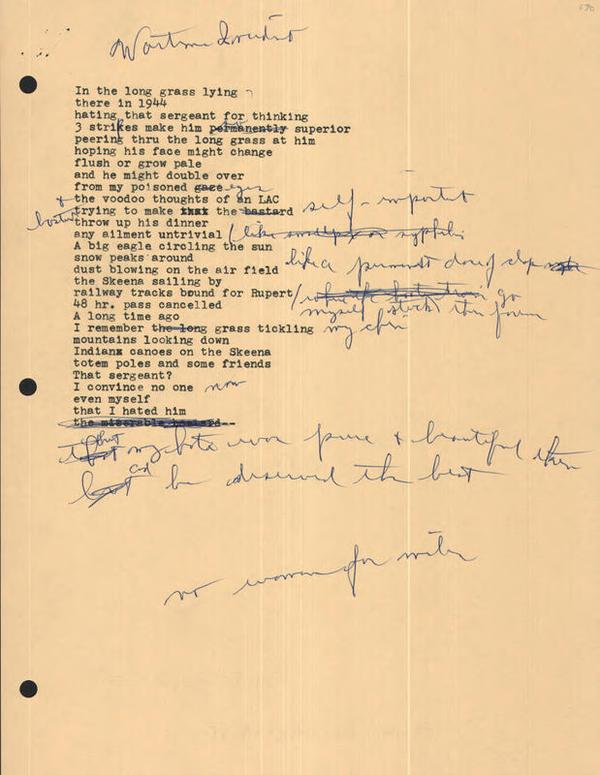 Wartime Incident
In the long grass lying
there in 1944
hating that sergeant for thinking
3 strikes make him permanently superior
peering thru the long grass at him
hoping his face might change
flush or grow pale
and he might double over
from my poisoned gaze eyes
& the voodoo thoughts of an LAC
trying to make that the bastard self-important
bastard throw up his dinner
any ailment untrivial (like smallpox or syphilis
A big eagle circling the sun
snow peaks around like a permanent dose of clap
dust blowing on the air field
the Skeena sailing by
railway tracks bound for Rupert go
48 hr. pass cancelled myself stuck
A long time ago
I remember the long grass tickling my chin
mountains looking down
Indian canoes on the Skeena
totem poles and some friends
That sergeant?
I convince no one now
even myself
that I hated him
the miserable bastard--
but my hate was pure & beautiful then
but and he deserved the best
no women for miles